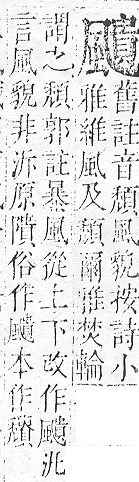 䫭舊註音頹風貌按詩小
雅維風及頹爾雅焚輪
謂之頹郭註暴風從上下改作䫭汎
言風貌非泝原隤俗作䫭本作穨